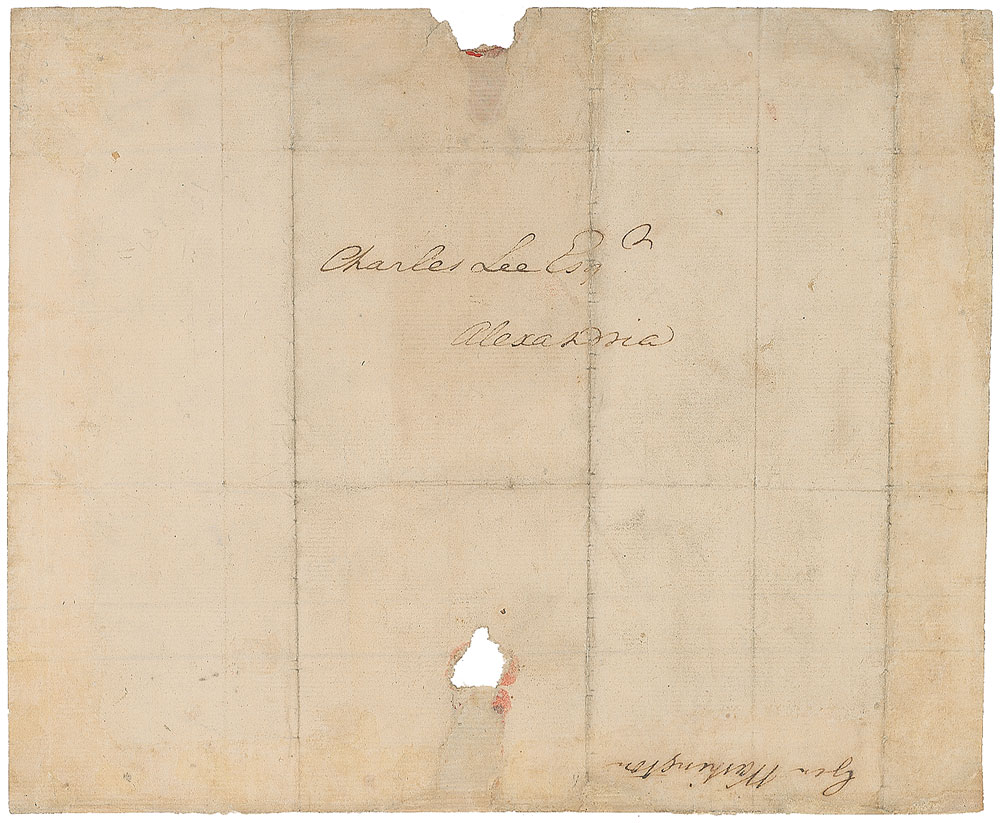 Charles Lee Esqr
Alexandria
Gen Washington